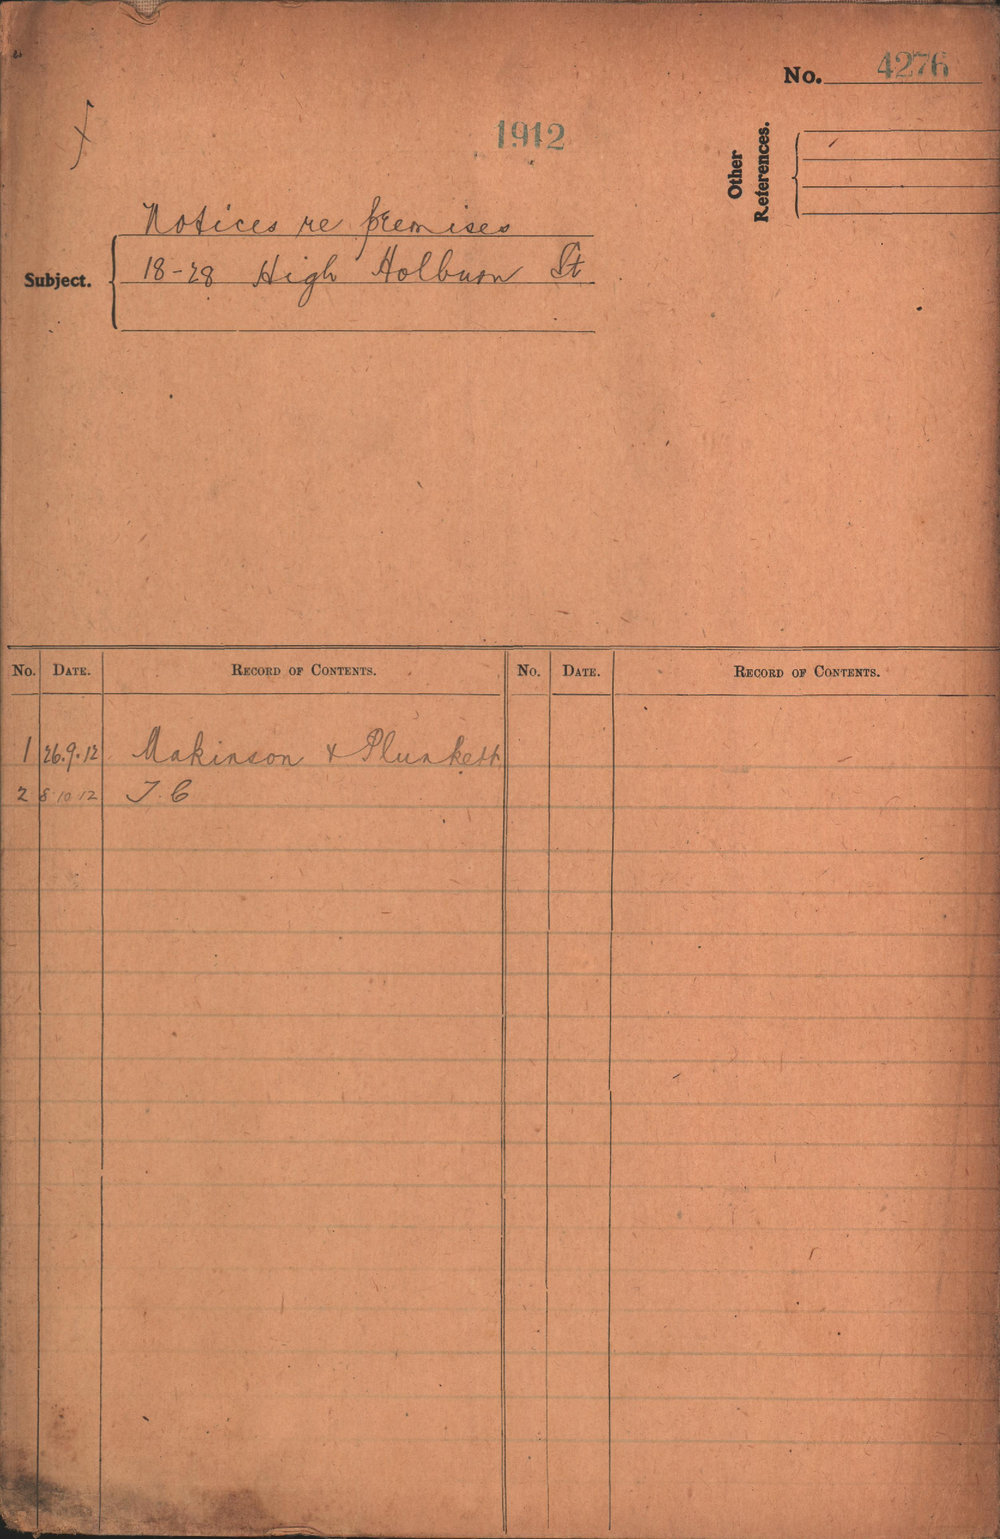 No. 4276
1912
Other
References.
Notices re premises
Subject.
18-28 High Holburn St
No. DATE. RECORD OF CONTENTS. No. DATE. RECORD OF CONTENTS.
1 26.9.12 Makinson & Plunkett
2 8 10 12 T. C